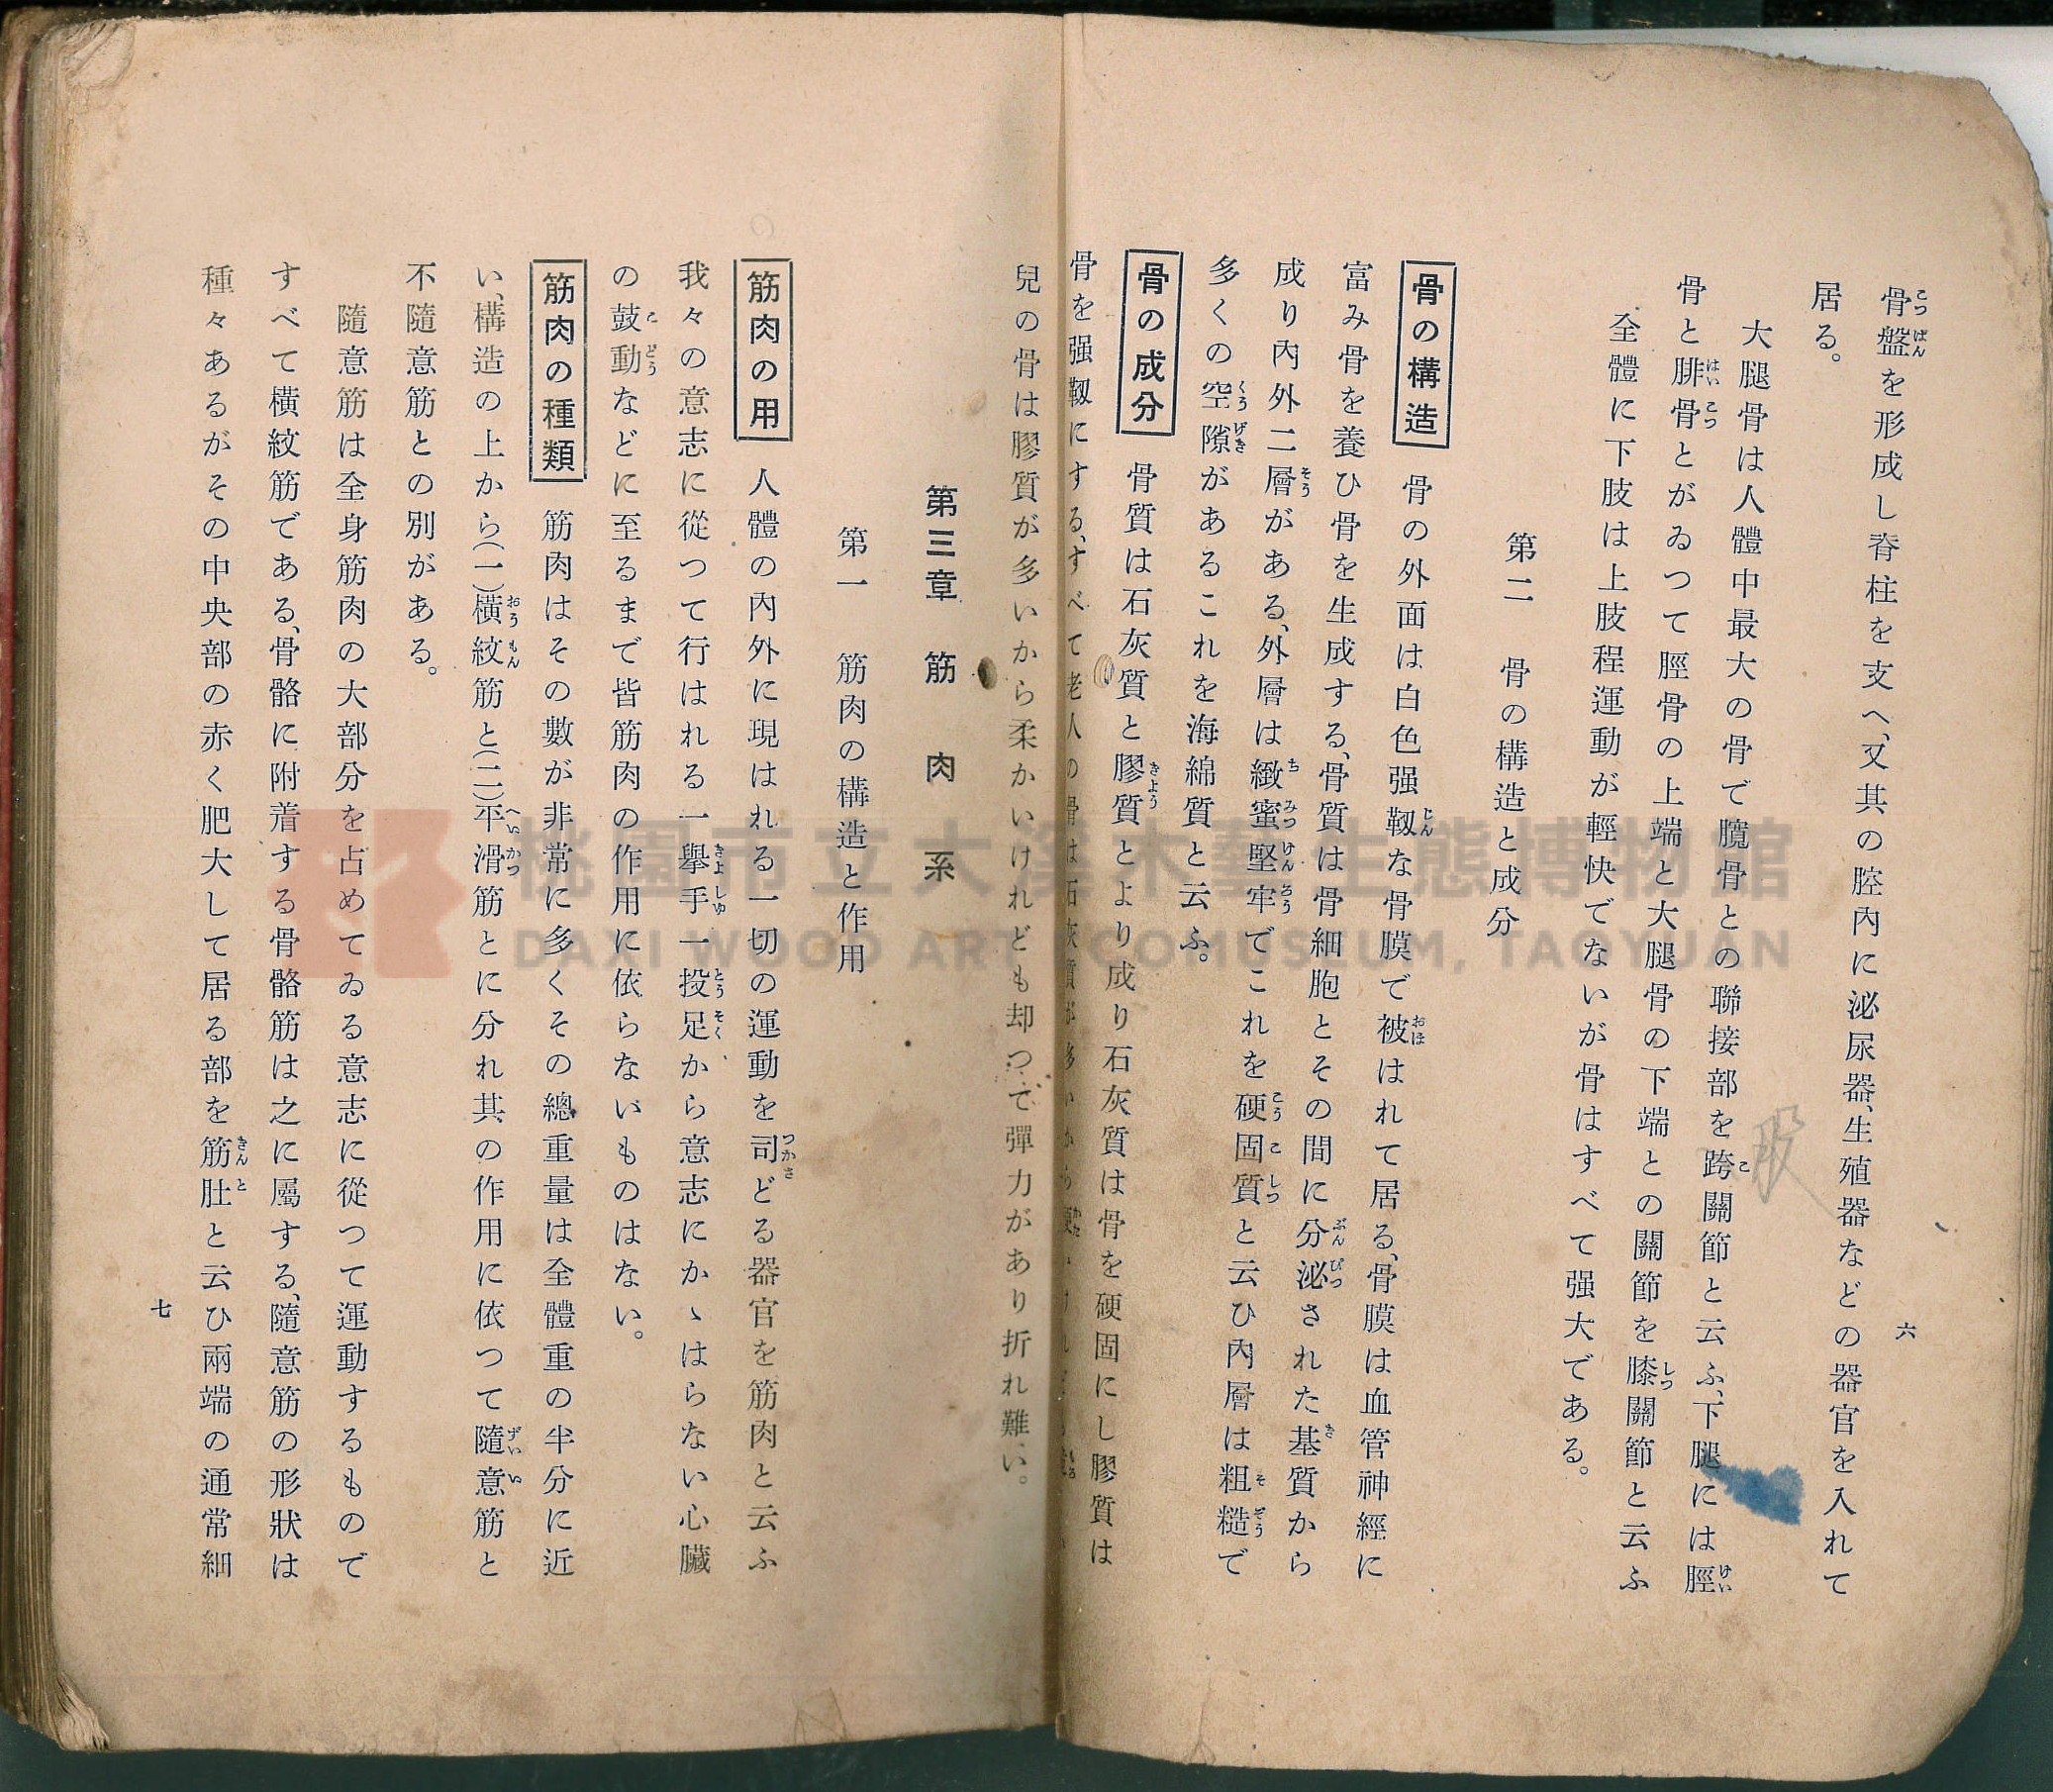 六
骨盤を形成し脊柱を支へ、又其の腔內に泌尿器、生殖器などの器官を入れて
居る。
大腿骨は人體中最大の骨で臗骨との聯接部を跨關節と云ふ、下腿には脛
骨と腓骨とがゐつて脛骨の上端と大腿骨の下端との關節を膝關節と云ふ
全體に下肢は上肢程運動が輕快でないが骨はすべて强大である。
第二 骨の構造と成分
骨の構造 骨の外面は白色强靱な骨膜で被はれて居る、骨膜は血管神經に
富み骨を養ひ骨を生成する、骨質は骨細胞とその間に分泌された基質から
成り內外二層がある、外層は緻蜜堅牢でこれを硬固質と云ひ內層は粗糙で
多くの空隙があるこれを海綿質と云ふ。
骨の成分 骨質は石灰質と膠質とより成り石灰質は骨を硬固にし膠質は
骨を强靱にする、すべて老人の骨は石灰質が多いから
兒の骨は膠質が多いから柔かいけれども却つて彈力があり折れ難い。
第三章 筋肉系
第一 筋肉の構造と作用
筋肉の用 人體の內外に現はれる一切の運動を司どる器官を筋肉と云ふ
我々の意志に從つて行はれる一擧手一投足から意志にかゝはらない心臟
の鼓動などに至るまで皆筋肉の作用に依らないものはない。
筋肉の種類 筋肉はその數が非常に多くその總重量は全體重の半分に近
い、構造の上から(一)橫紋筋と(二)平滑筋とに分れ其の作用に依つて隨意筋と
不隨意筋との別がある。
隨意筋は全身筋肉の大部分を占めてゐる意志に從つて運動するもので
すべて橫紋筋である、骨骼に附着する骨骼筋は之に屬する、隨意筋の形狀は
種々あるがその中央部の赤く肥大して居る部を筋肚と云ひ兩端の通常細
七
股
桃園市立大溪木藝生態博物館
DAXI WOOD ART ECOMUSEUM, TAOYUAN